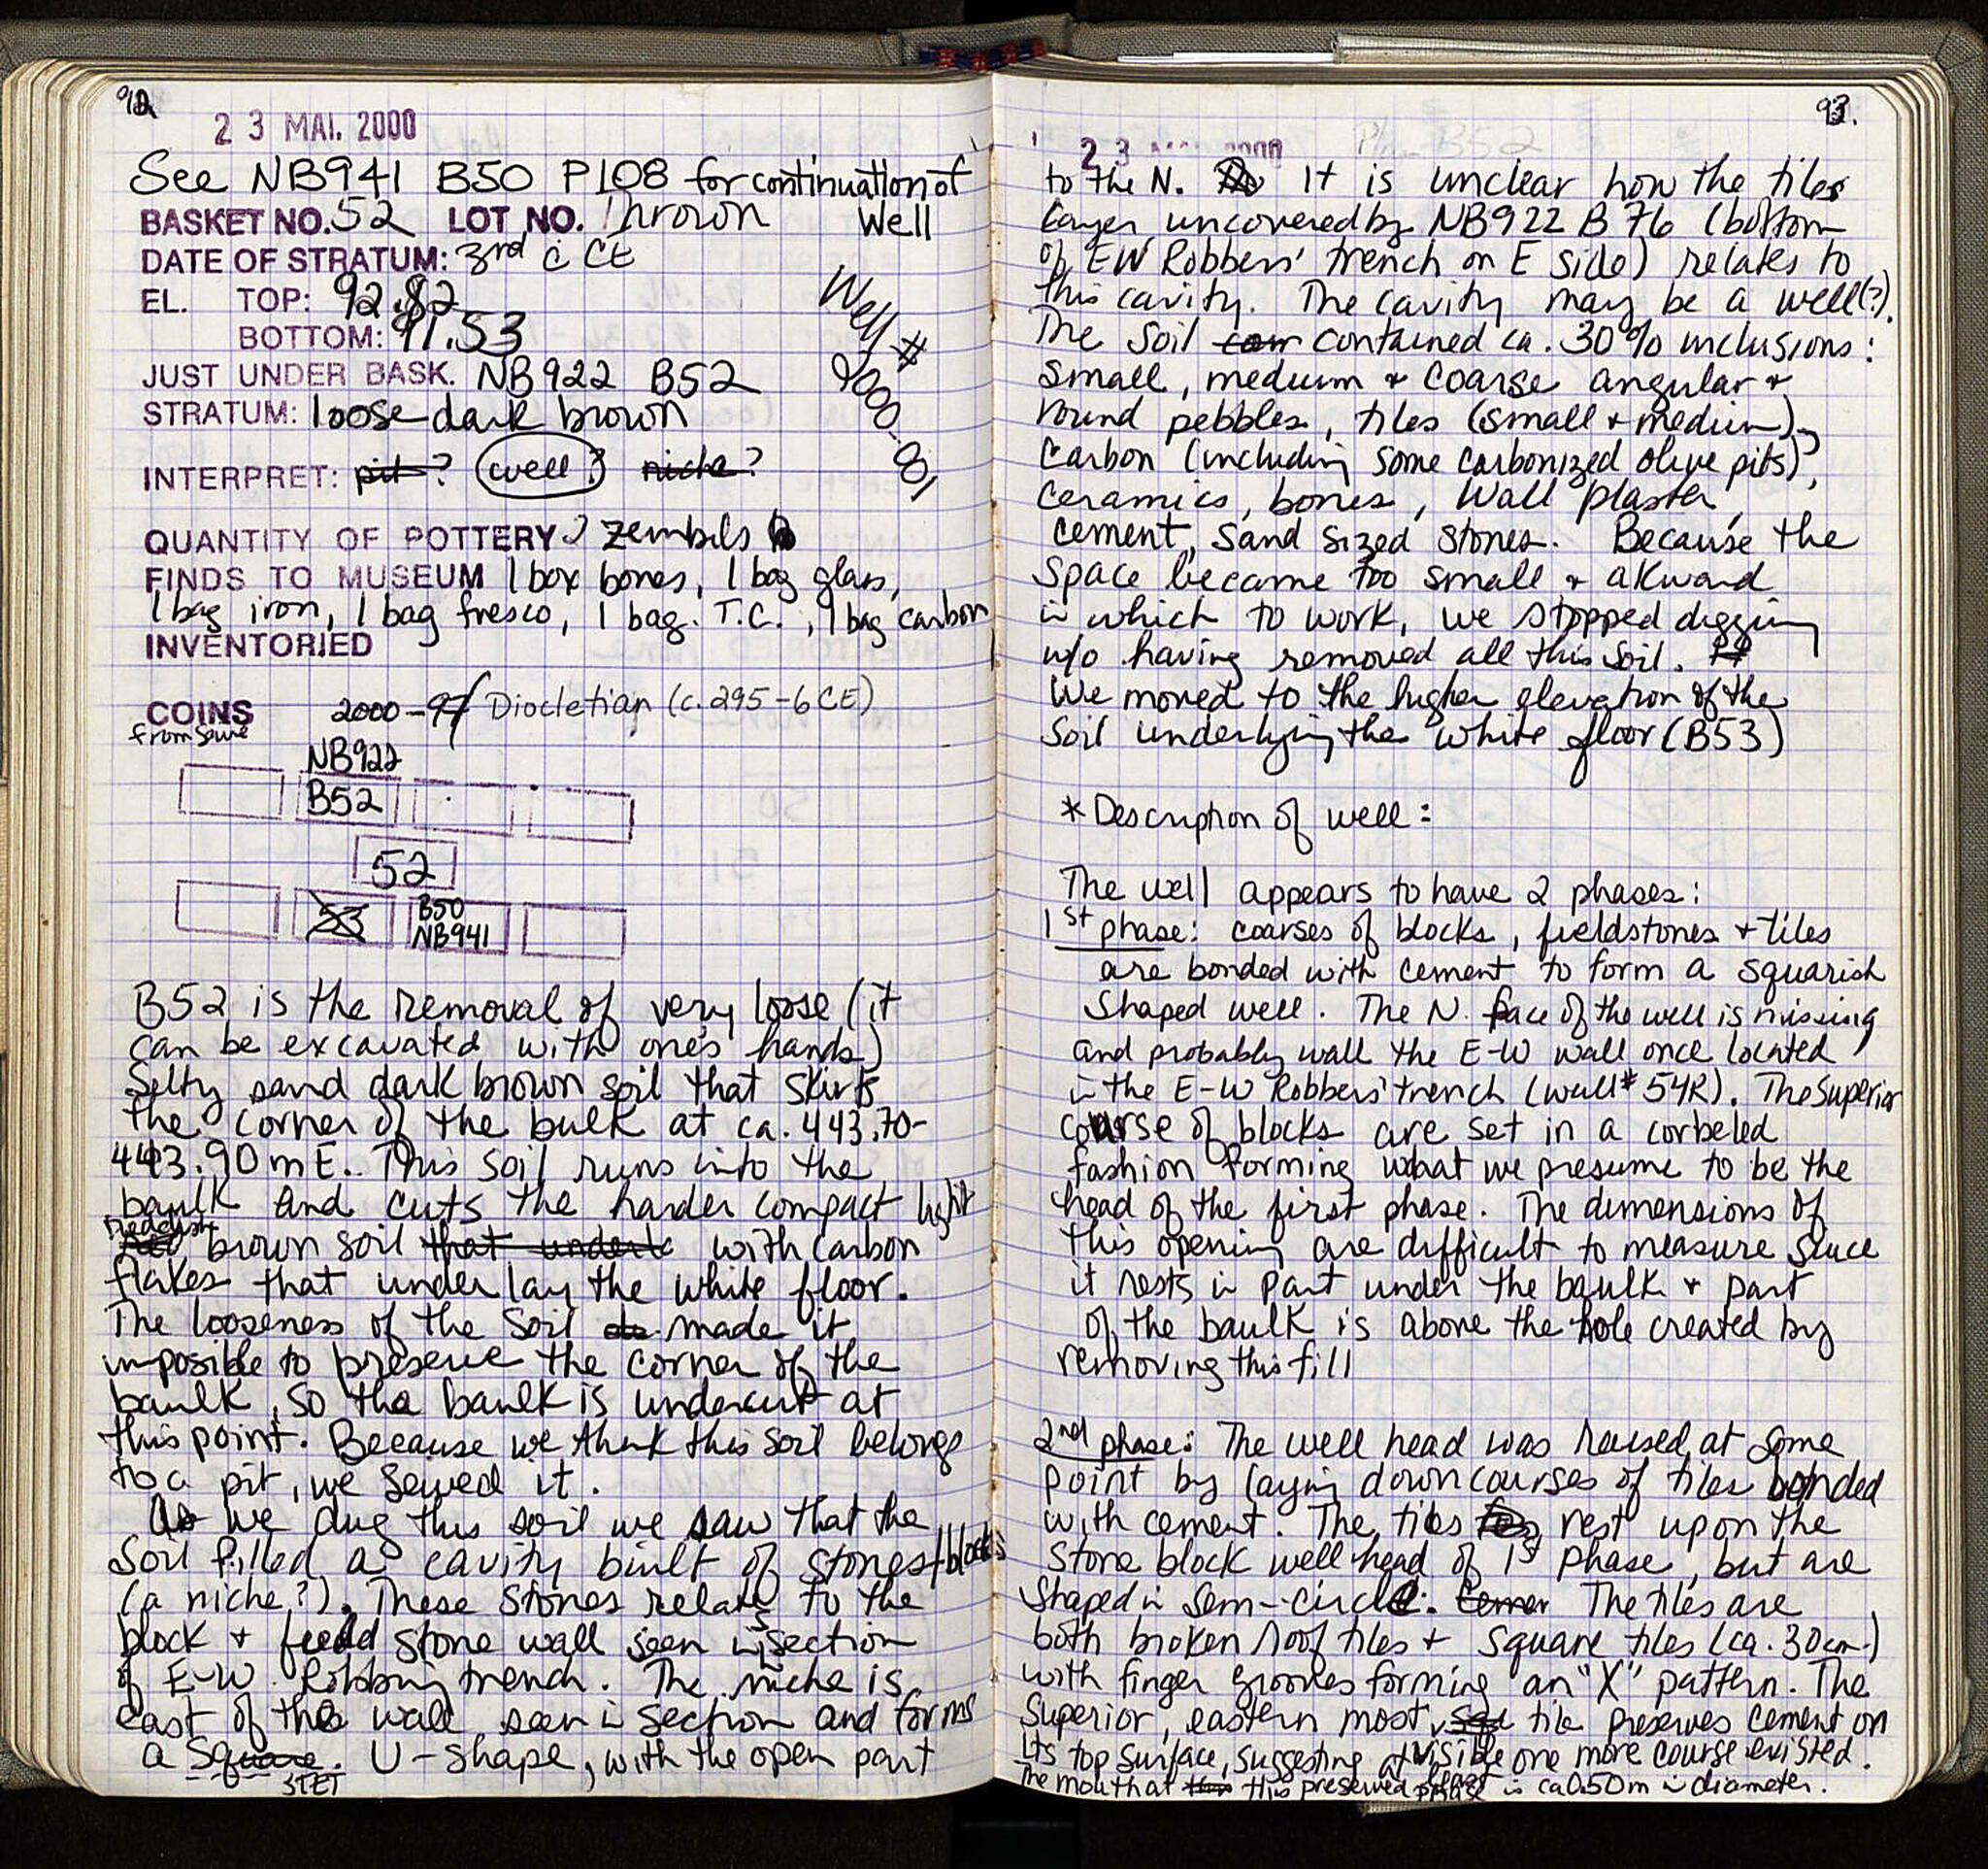 92
23 MAI. 2000
See NB941 B50 P108 for continuation of
Well
BASKET NO. 52 LOT NO. Thrown
DATE OF STRATUM: 3rd c CE
EL. TOP: 92.82
BOTTOM: 91.53
Well #
2000-001
JUST UNDER BASK. NB922 B52
STRATUM: loose dark brown
INTERPRET: pit? well? niche?
QUANTITY OF POTTERY 2 zembils
FINDS TO MUSEUM 1 box bones, 1 bag glass,
1 bag iron, 1 bag fresco, 1 bag T.C., 1 bag carbon
INVENTORIED
COINS 2000-97 Diocletian (c. 295-6 CE)
from sieve
NB922
B52
52
53 B50
NB941
B52 is the removal of very loose (it
can be excavated with one's hands)
Silty sand dark brown soil that skirts
the corner of the bulk at ca. 443.70-
443.90 m E.. This soil runs into the
baulk and cuts the harder compact light
reddish
brown soil that underla with carbon
flakes that under lay the white floor.
The looseness of the soil made it
imposible to preserve the corner of the
baulk, so the baulk is undercut at
this point. Because we think this soil belongs
to a pit, we seived it.
As we dug this soil we saw that the
soil filled a cavity built of stones + blocks
(a niche?). These stones relate to the
block + field stone wall seen in section
of E-W Robbing trench. The niche is
east of this wall seen in section and forms
a square. U-shape, with the open part
STET
93.
23 MAI 2000
to the N. It is unclear how the tiles
layer uncovered by NB922 B76 (bottom
of EW Robbers' trench on E side) relates to
this cavity. The cavity may be a well(?).
The soil con contained ca. 30% inclusions:
small, medium + coarse angular +
round pebbles, tiles (small + medium),
Carbon (including some carbonized olive pits),
ceramics, bones, wall plaster,
cement, sand sized stones. Because the
space became too small + akward
in which to work, we stopped digging
w/o having removed all this soil. It
We moved to the higher elevation of the
soil underlying the white floor (B53)
* Description of well:
The well appears to have 2 phases:
1st phase: coarses of blocks, fieldstones + tiles
are bonded with cement to form a squarish
shaped well. The N. face of the well is missing
and probably wall the E-W wall once located
in the E-W Robbers' trench (wall # 54R). The superior
course of blocks are set in a corbeled
fashion forming what we presume to be the
head of the first phase. The dimensions of
this opening are difficult to measure since
it rests in part under the baulk + part
of the baulk is above the hole created by
removing this fill
2nd phase: The well head was raised at some
point by laying down courses of tiles bonded
with cement. The tiles rest upon the
stone block well head of 1st phase, but are
shaped in sem-circle. Cemen The tiles are
both broken roof tiles + square tiles (ca. 30cm.)
with finger grooves forming an "X" pattern. The
superior, eastern most, tile preserves cement on
its top surface, suggesting at visible one more course existed.
The mouth at this preserved phase is ca 0.50 m in diameter.